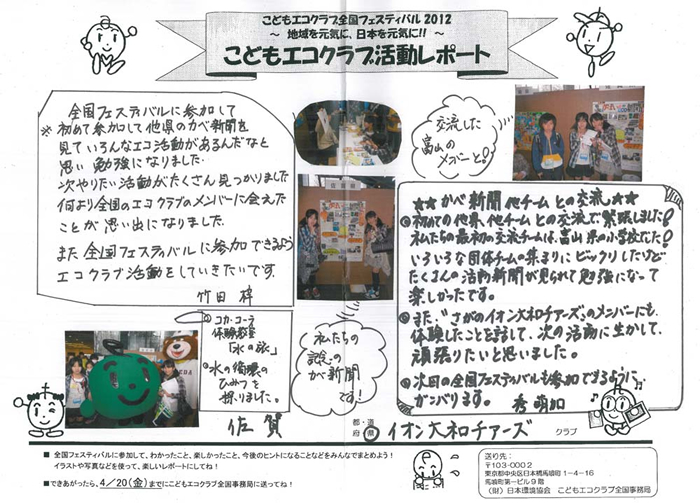 こどもエコクラブ全国フェスティバル 2012
～ 地域を元気に、日本を元気に!! ～
こどもエコクラブ活動レポート
全国フェスティバルに参加して
※初めて参加して他県のかべ新聞を
見ていろんなエコ活動があるんだなと
思い 勉強になりました.
次やりたい活動がたくさん見っかりました
何より全国のエコクラブのメンバーに会えた
ことが 思い出になりました.
また 全国フェスティバルに参加できるよう
エコクラブ活動をしていきたいです.
竹田 梓
交流した
富山の
メンバーと!
佐賀県
☆☆ かべ新聞 他チームとの交流 ☆☆
◎初めての他県、他チームとの交流で緊張しました!
私たちの最初の交流チームは、富山県の小学校だた!
いろいろな団体チームの集まりにビックリしたけど
たくさんの活動新聞が見られて勉強になって
楽しかったです。
◎また、“さがのイオン大和チアーズ”のメンバーにも
体験したことを話して、次の活動に生かして、
頑張りたいと思いました。
◎次回の全国フェスティバルも参加できるように
ガンバります。
秀 萌加
◎コカ・コーラ
体験教室
「水の旅」
◎水の循環の
ひみつを
探りました。
私たちの
記念の
かべ新聞
です!
佐賀
都・道
府・県
イオン大和チアーズ
クラブ
■ 全国フェスティバルに参加して、わかったこと、楽しかったこと、今後のヒントになることなどをみんなでまとめよう!
イラストや写真などを使って、楽しいレポートにしてね!
■できあがったら、4/20(金)までにこどもエコクラブ全国事務局に送ってね!
送り先：
〒103-0002
東京都中央区日本橋馬喰町1-4-16
馬喰町第一ビル9階
(財)日本環境協会 こどもエコクラブ全国事務局